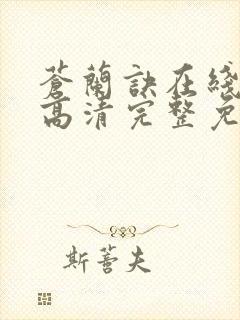 蒼蘭訣在綫
高清完整免
斯蓍夫